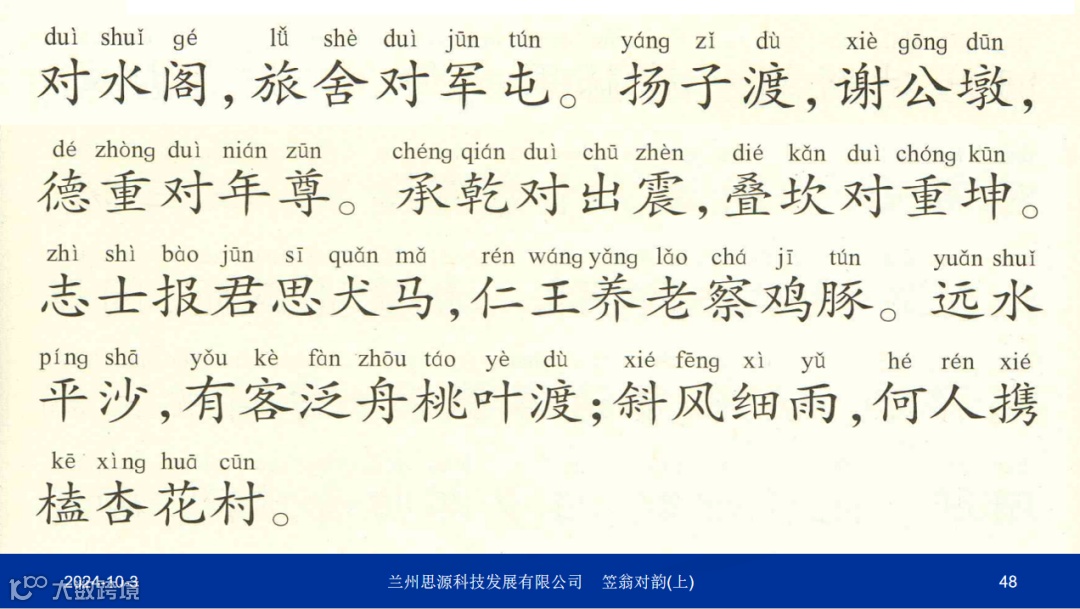 duì shuǐ gé lǚ shè duì jūn tún yáng zǐ dù xiè gōng dūn
对水阁,旅舍对军屯。扬子渡,谢公墩,
dé zhòng duì nián zūn chéng qián duì chū zhèn dié kǎn duì chóng kūn
德重对年尊。承乾对出震,叠坎对重坤。
zhì shì bào jūn sī quǎn mǎ rén wáng yǎng lǎo chá jī tún yuǎn shuǐ
志士报君思犬马,仁王养老察鸡豚。远水
píng shā yǒu kè fàn zhōu táo yè dù xié fēng xì yǔ hé rén xié
平沙,有客泛舟桃叶渡;斜风细雨,何人携
kē xìng huā cūn
榼杏花村。
2024-10-3 兰州思源科技发展有限公司 笠翁对韵(上) 48
大数跨境